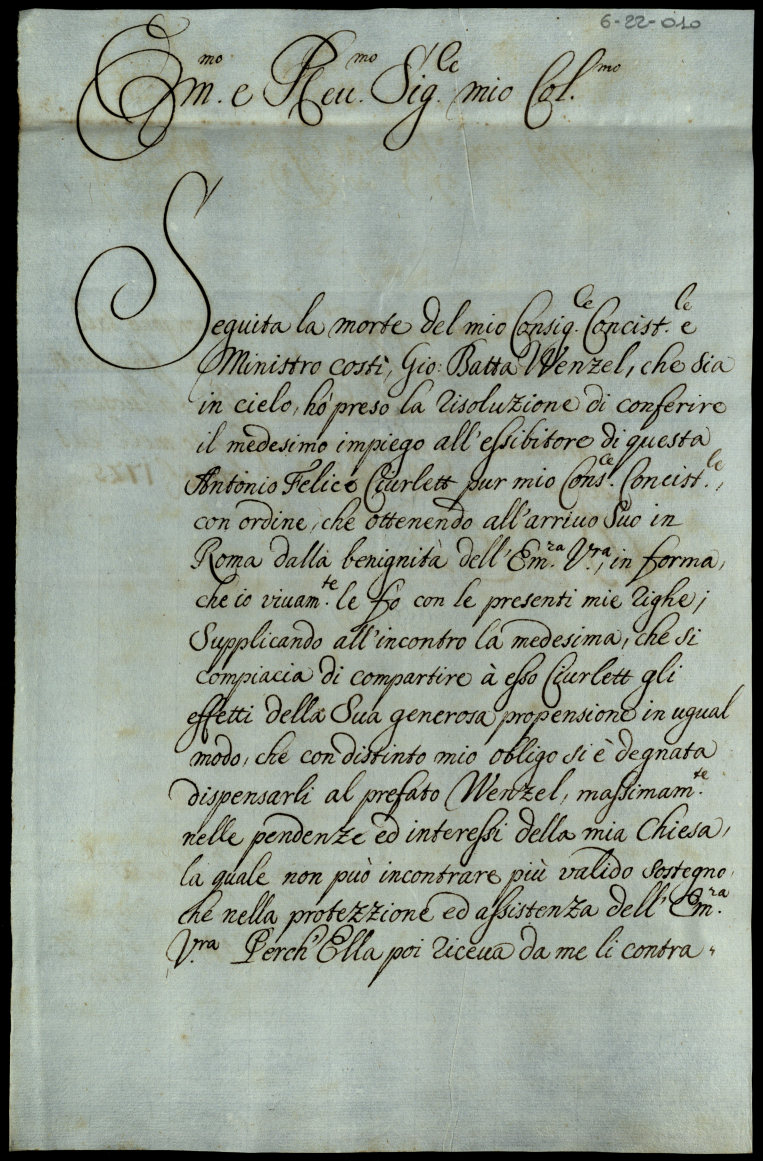 6-22-010
Em.mo e Reu.mo Sig.le mio Col.mo
Seguita la morte del mio Consig.le Concist.le e
Ministro costì, Gio: Batta Wenzel, che sia
in cielo, hò preso la risoluzione di conferire
il medesimo impiego all'essibitore di questa
Antonio Felice Ciurlett pur mio Cons.le Concist.le,
con ordine, che ottenendo all'arriuo Suo in
Roma dalla benignità dell'Em.za V.ra, in forma,
che io viuam.te le fo con le presenti mie righe;
Supplicando all'incontro la medesima, che si
compiacia di compartire à esso Ciurlett gli
effetti della Sua generosa propensione in ugual
modo, che con distinto mio obligo si è degnata
dispensarli al prefato Wenzel, massimam.te
nelle pendenze ed interessi della mia Chiesa,
la quale non può incontrare più valido sostegno,
che nella protezzione ed assistenza dell'Em.za
V.ra Perch'Ella poi riceua da me li contra-